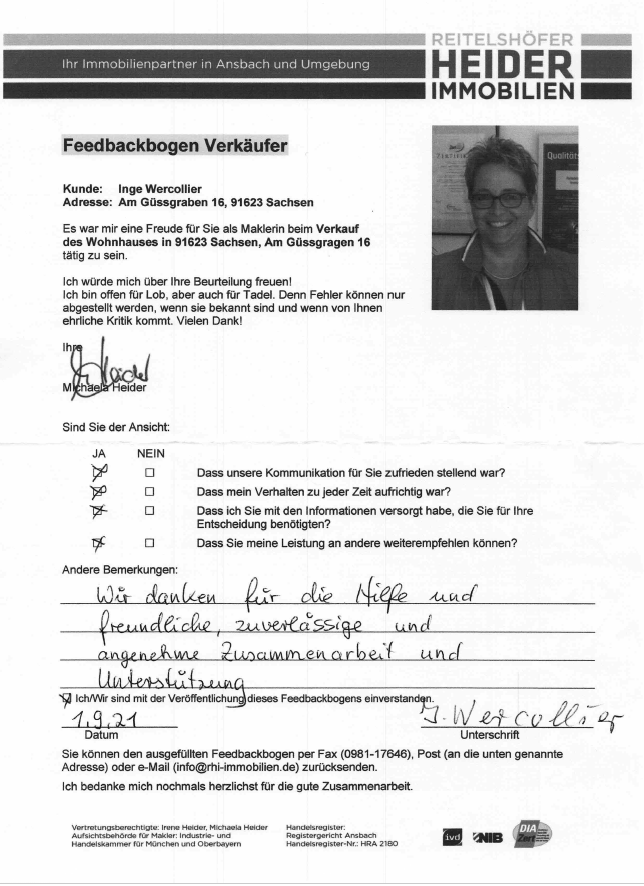 REITELSHÖFER
Ihr Immobilienpartner in Ansbach und Umgebung
HEIDER
IMMOBILIEN
Feedbackbogen Verkäufer
ZERTIFIK
Qualität
Kunde: Inge Wercollier
Adresse: Am Güssgraben 16, 91623 Sachsen
Es war mir eine Freude für Sie als Maklerin beim Verkauf
des Wohnhauses in 91623 Sachsen, Am Güssgragen 16
tätig zu sein.
Ich würde mich über Ihre Beurteilung freuen!
Ich bin offen für Lob, aber auch für Tadel. Denn Fehler können nur
abgestellt werden, wenn sie bekannt sind und wenn von Ihnen
ehrliche Kritik kommt. Vielen Dank!
Ihre
Michaela Heider
Sind Sie der Ansicht:
JA NEIN
Dass unsere Kommunikation für Sie zufrieden stellend war?
Dass mein Verhalten zu jeder Zeit aufrichtig war?
Dass ich Sie mit den Informationen versorgt habe, die Sie für Ihre
Entscheidung benötigten?
Dass Sie meine Leistung an andere weiterempfehlen können?
Andere Bemerkungen:
Wir danken für die Hilfe und
freundliche, zuverlässige und
angenehme Zusammenarbeit und
Unterstützung
Ich/Wir sind mit der Veröffentlichung dieses Feedbackbogens einverstanden.
1.9.21 I. Wercollier
Datum Unterschrift
Sie können den ausgefüllten Feedbackbogen per Fax (0981-17646), Post (an die unten genannte
Adresse) oder e-Mail (info@rhi-immobilien.de) zurücksenden.
Ich bedanke mich nochmals herzlichst für die gute Zusammenarbeit.
Vertretungsberechtigte: Irene Heider, Michaela Heider
Aufsichtsbehörde für Makler: Industrie- und
Handelskammer für München und Oberbayern
Handelsregister:
Registergericht Ansbach
Handelsregister-Nr.: HRA 2180
ivd
NIB
DIA
Zert